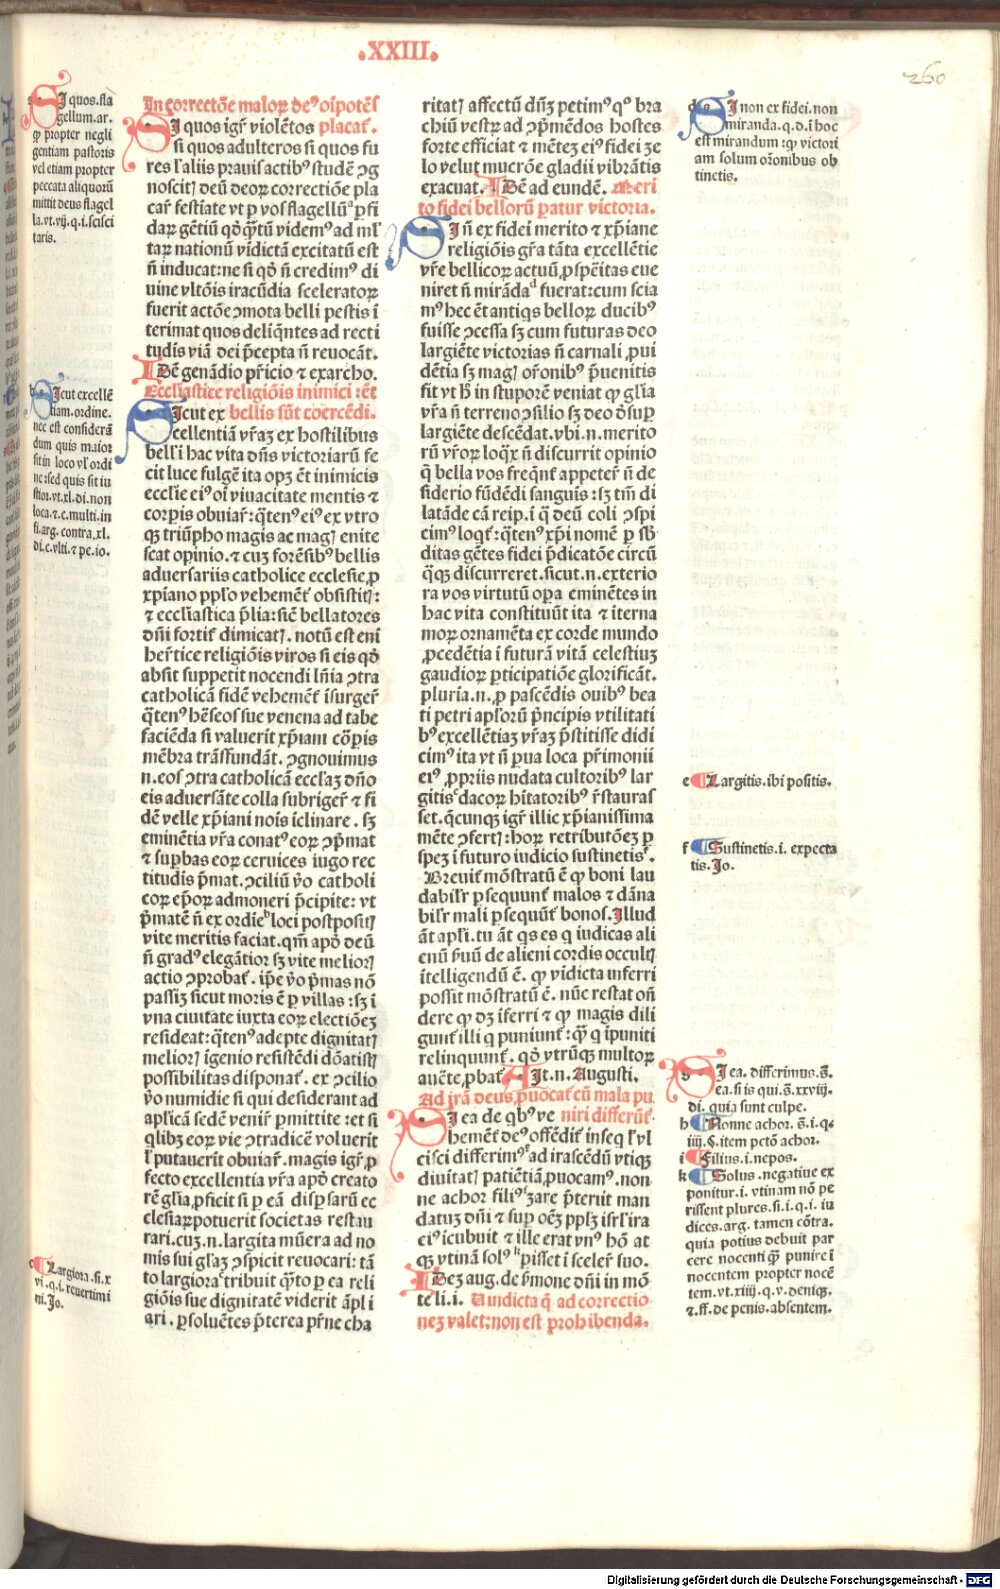 .XXIII.
260
Si quos.fla
gellum.ar.
ꝙ propter negli
gentiam pastoris
vel etiam propter
peccata aliquorū
mittit deus flagel
la.vt.vij.q.i.scisci
taris.
b Sicut excellē
tiam.ordine.
nec est considerā
dum quis maior
sit in loco vl' ordi
ne:sed quis sit iu
stior.vt.xl.di.non
loca.⁊.c.multi.in
fi.arg. contra.xl.
di.c.vlti.⁊ pe.io.
c Largiora.si.x
vi.q.i.reuertimi
ni.Jo.
In correctōe maloꝝ deꝰ oīpotēs
Si quos igr̄ violētos placat̄.
si quos adulteros si quos fu
res l' aliis prauis actibꝰ studēꝰ ꝯg
noscitꝭ deū deoꝝ correctiōe pla
car̄ festiate vt ꝑ vos flagellūᵃ ꝑfi
daꝝ gētiū qd̄ qᷓtū videmꝰ ad ml'
taꝝ nationū vīdictā excitatū est
ñ inducat:ne si qd̄ ñ credimꝰ di
uine vltōis iracūdia sceleratoꝝ
fuerit actōe ꝯmota belli pestis ī
terimat quos deliq̄ntes ad recti
tudis viā dei p̄cepta ñ reuocāt.
Idē genādio p̄ricio ⁊ exarcho.
Eccl'iastice religiōis inimici :ēt
Sicut ex bellis sūt coercēdi.
cellentiā vr̄aꝫ ex hostilibus
bell'i hac vita dn̄s victoriarū fe
cit luce fulgē ita opꝫ ēt inimicis
eccl'ie eiꝰ oī viuacitate mentis ⁊
corꝑis obuiar̄:q̄tenꝰ eiꝰ ex vtro
qꝫ triūpho magis ac magꝭ enite
scat opinio.⁊ cuꝫ forēsibꝰ bellis
aduersariis catholice ecclesie,ꝓ
xp̄iano pp̄l'o vehemēt̄ obsistitꝭ:
⁊ eccl'iastica p̄lia:sicē bellatores
dn̄i fortit̄ dimicatꝭ. notū est eni
her̄tice religiōis viros si eis qd̄
absit suppetit nocendi lñia ꝯtra
catholicā fidē vehemēt̄ īsurger̄
q̄tenꝰ hēseos sue venena ad tabe
faciēda si valuerit xp̄iani cōꝑis
mēbra trāssundāt. ꝯgnouimus
n.eos ꝯtra catholicā eccl'aꝫ dn̄o
eis aduersāte colla subriger̄ ⁊ fi
dē velle xp̄iani nois īclinare. sꝫ
eminētia vr̄a conatꝰ eoꝝ ꝯp̄mat
⁊ suꝑbas eoꝝ ceruices iugo rec
titudis p̄mat. ꝯciliū v̄o catholi
coꝝ ep̄oꝝ admoneri p̄cipite: vt
p̄matē ñ ex ordīeᵇ loci postpositꝭ
vite meritis faciat.qm̄ apd̄ deū
ñ gradꝰ elegātior sꝫ vite meliorꝭ
actio ꝯprobat̄. ip̄e v̄o p̄mas nō
passiꝫ sicut moris ē ꝑ villas :sꝫ ī
vna ciuitate iuxta eoꝝ electiōeꝫ
resideat:q̄tenꝰ adepte dignitatꝭ
meliorꝭ īgenio resistēdi dōatistꝭ
possibilitas disponat̄. ex ꝯcilio
v̄o numidie si qui desiderant ad
apl'icā sedē venir̄ ꝑmittite :et si
ql̄ibꝫ eoꝝ vie ꝯtradicē voluerit
l' putauerit obuiar̄. magis igr̄,ꝓ
fecto excellentia vr̄a apd̄ creato
rē gl'ia,ꝓficit si ꝑ eā disꝑsarū ec
clesiaꝝpotuerit societas restau
rari.cuꝫ.n.largita mūera ad no
mis sui gl'aꝫ ꝯspicit reuocari: tā
to largioraᶜ tribuit q̄to ꝑ ea reli
giōis sue dignitatē viderit āpl i
ari. ꝑsoluētes p̄terea p̄rne cha
ritatꝭ affectū dn̄ꝫ petimꝰ qꝰ bra
chiū vestꝝ ad ꝯp̄mēdos hostes
forte efficiat ⁊ mēteꝫ eiꝰ fidei ze
lo velut mucrōe gladii vibrātis
exacuat. Idē ad eundē. Meri
to fidei bellorū ꝑatur victoria.
Si ñ ex fidei merito ⁊ xp̄iane
religiōis gr̄a tāta excellētie
vr̄e bellicoꝝ actuū,ꝓspēitas eue
niret ñ mirādaᵈ fuerat:cum scia
mꝰ hec ēt antiqs belloꝝ ducibꝰ
fuisse ꝯcessa sꝫ cum futuras deo
largiēte victorias ñ carnali ,ꝓui
dētia sꝫ magꝭ or̄onibꝰ p̄uenitis
fit vt h̄ in stuporē veniat ꝙ gl'ia
vr̄a ñ terreno ꝯsilio sꝫ deo d̄suꝑ
largiēte descēdat.vbi.n.merito
rū vr̄oꝝ loq̄x ñ discurrit opinio
q̄ bella vos freq̄nt̄ appeter̄ ñ de
siderio fūdēdi sanguis :sꝫ tm̄ di
latāde cā reip. ī q̄ deū coli ꝯspi
cimꝰ loqt̄: q̄tenꝰ xp̄i nomē ꝑ sb̄
ditas gētes fidei p̄dicatōe circū
q̄qꝫ discurreret.sicut.n.exterio
ra vos virtutū oꝑa eminētes in
hac vita constituūt ita ⁊ īterna
moꝝ ornamēta ex corde mundo
,ꝓcedētia ī futurā vitā celestiuꝫ
gaudioꝝ ꝑticipatiōe glorificāt.
pluria.n.,ꝓ pascēdis ouibꝰ bea
ti petri apl'orū p̄ncipis vtilitati
bꝰ excellētiaꝫ vr̄aꝫ p̄stitisse didi
cimꝰ ita vt ñ ꝑua loca p̄rimonii
eiꝰ ,ꝓpriis nudata cultoribꝰ lar
gitisᵉ dacoꝝ hītatoribꝰ r̄stauras
set.q̄cunqꝫ igr̄ illic xp̄ianissima
mēte ꝯfertꝭ:hoꝝ retributōeꝫ ꝑ
speꝫ ī futuro iudicio sustinetisᶠ.
Breuit̄ mōstratū ē ꝙ boni lau
dabil'r ꝑsequunt̄ malos ⁊ dāna
bil'r mali ꝑsequūt̄ bonos.Illud
āt apl'i.tu āt qs es q iudicas ali
enū ƥuū de alieni cordis occultꝭ
ītelligendū ē. ꝙ vīdicta inferri
possit mōstratū ē. nūc restat oñ
dere ꝙ dꝫ īferri ⁊ ꝙ magis dili
gunt̄ illi q puniunt̄: qᷓ q īpuniti
relinquunt̄. qd̄ vtrūqꝫ multoꝝ
auc̄te,ꝓbat̄ Ait.n.Augusti.
Ad irā deus,ꝓuocat̄ cū mala pu
Si ea de qbꝰ ve niri differūt̄
hemēt̄ deꝰ offēdit̄ inseq l' vl
cisci differimꝰᵍ ad irascēdū vtiqꝫ
diuitatꝭ patiētiā,ꝓuocamꝰ. non
ne achorʰ filiꝰⁱ zare p̄terit man
datuꝫ dn̄i ⁊ suꝑ oēꝫ pplꝫ isrl'ira
eiꝰ īcubuit ⁊ ille erat vnꝰ hō at
qꝫ vtinā solꝰᵏ ꝑisset ī sceler̄ suo.
Ideꝫ aug. de ẜmone dn̄i in mō
te li.i. Vindicta q̄ ad correctio
neꝫ valet:non est prohibenda.
d Si non ex fidei.non
miranda.q.d.ī hoc
est mirandum :ꝙ victori
am solum or̄onibus ob
tinetis.
e Largitis.ibi positis.
f Sustinetis.i. expecta
tis.Jo.
g Si ea. differimus.s̄.
ea.si is qui.s̄.xxviij.
di. quia sunt culpe.
h Nonne achor. s̄.i.q.
iiij.§.item pctō achor.
i Filius.i.nepos.
k Solus.negatiue ex
ponitur.i. vtinam nō pe
rissent plures.si.i.q.i. iu
dices.arg. tamen cōtra.
quia potius debuit par
cere nocenti qᷓ punire ī
nocentem propter nocē
tem.vt.xiiij.q.v.deniqꝫ.
⁊.ff.de penis.absentem.
Digitalisierung gefördert durch die Deutsche Forschungsgemeinschaft - DFG